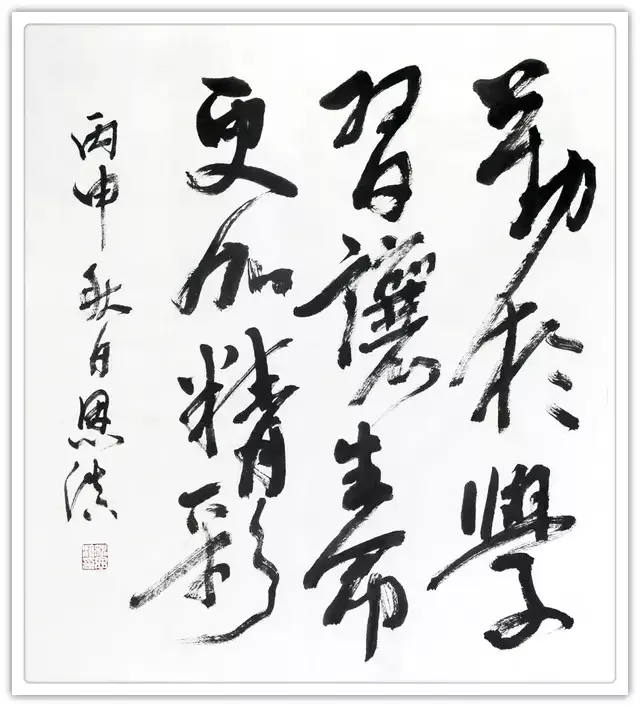 勤於學
習讓生命
更加精彩
丙申秋